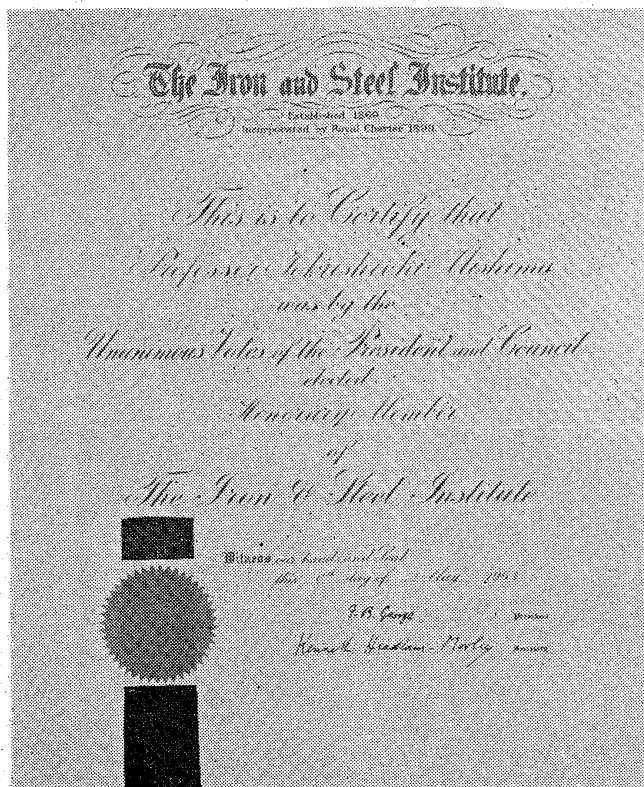 The Iron and Steel Institute.
Established 1869
Incorporated by Royal Charter 1899.
This is to Certify that
Professor
was by the
Unanimous Votes of the President and Council
elected
Honorary Member
of
The Iron & Steel Institute
Witness our hands and Seal
this day of May
Kenneth Headlam-Morley